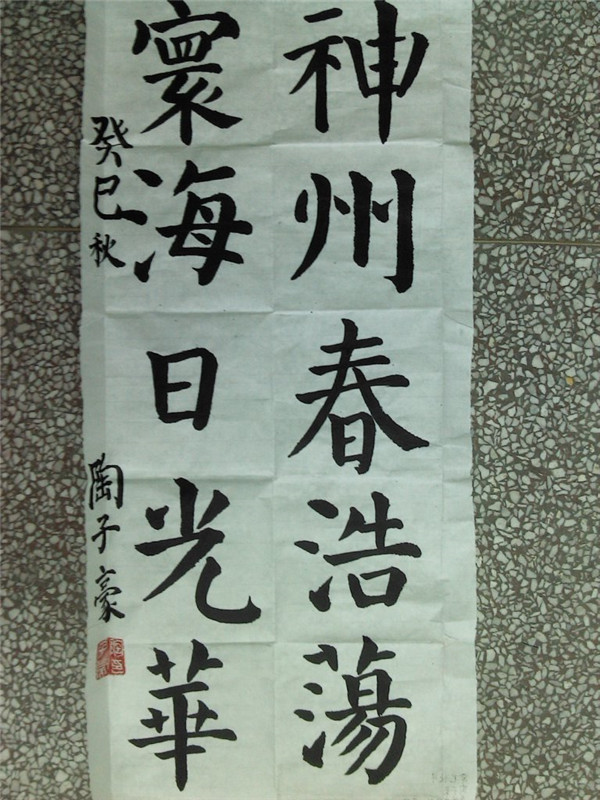 神州春浩蕩
寰海日光華
癸巳秋
陶子豪